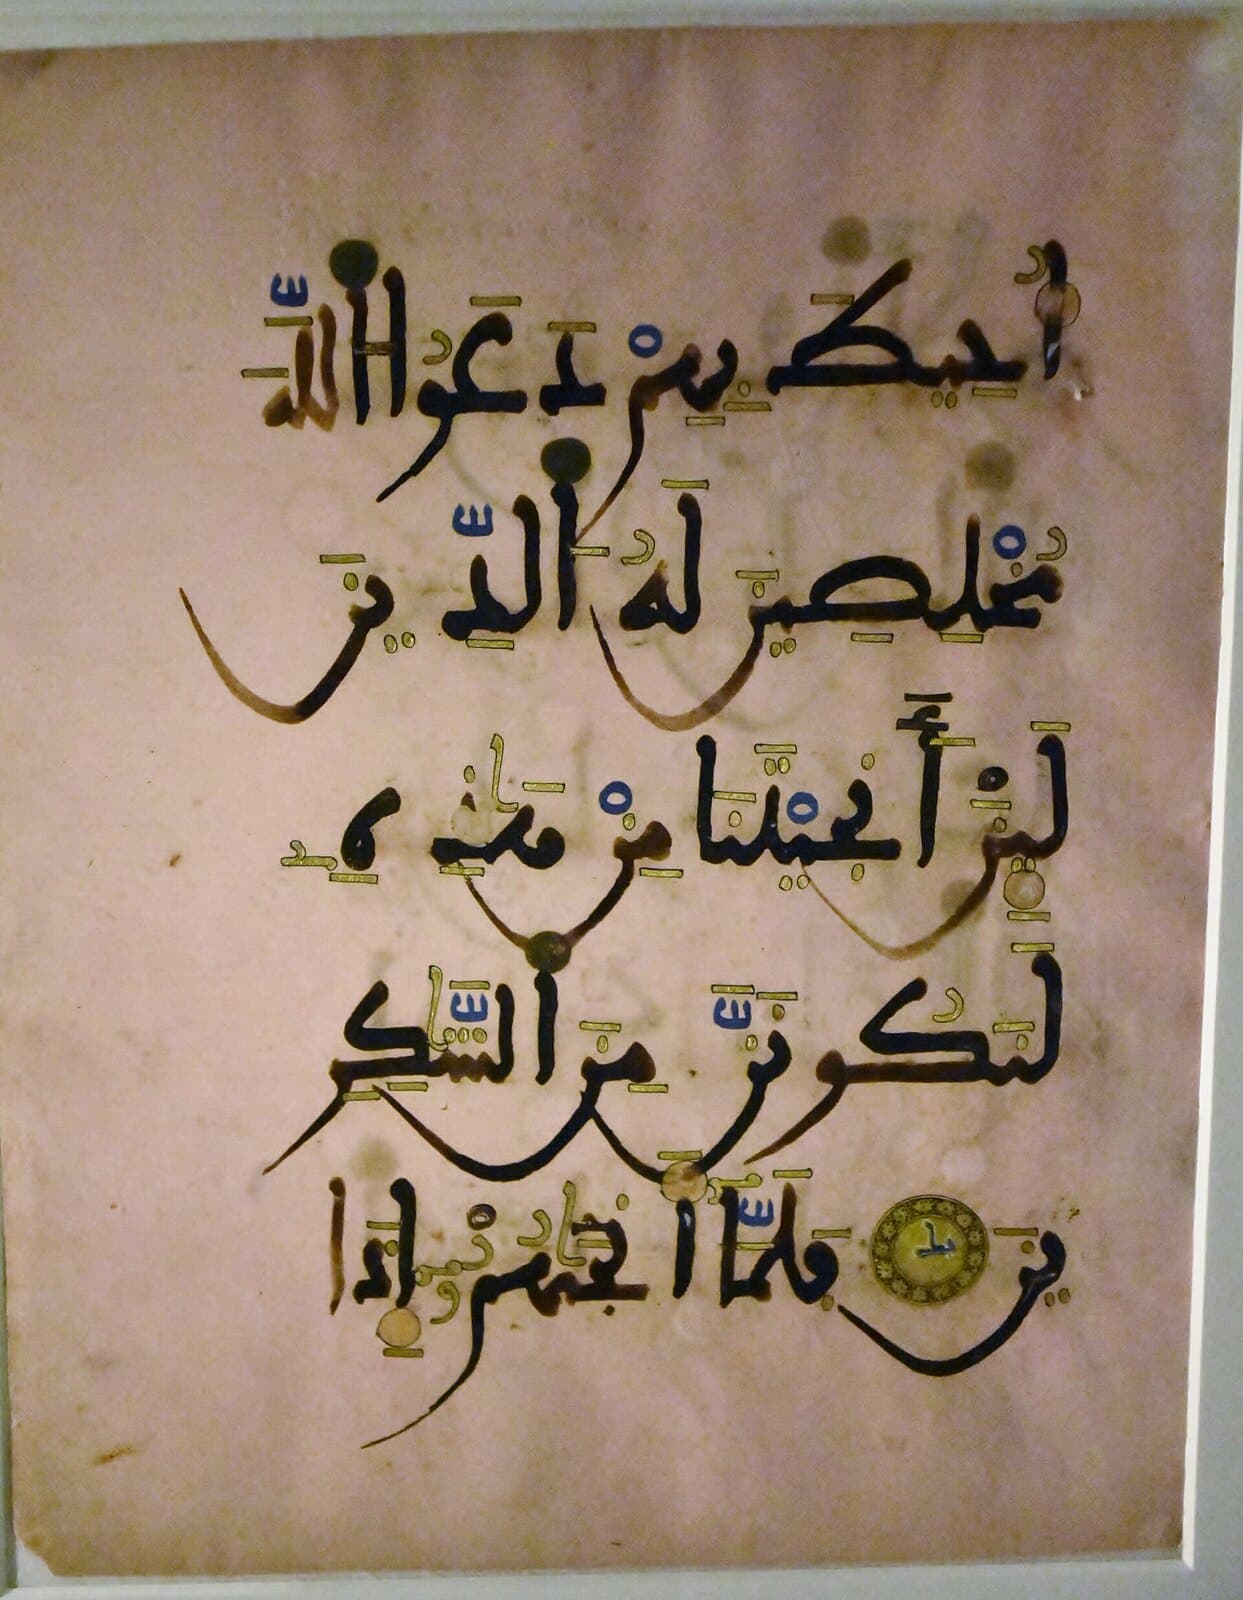 أُحِيطَ بِهِمْ دَعَوُا اللَّهَ
مُخْلِصِينَ لَهُ الدِّينَ
لَئِنْ أَنجَيْتَنَا مِنْ هَٰذِهِ
لَنَكُونَنَّ مِنَ الشَّٰكِرِ
ينَ فَلَمَّا أَنجَىٰهُمُ إِذَا